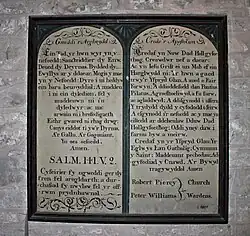 Gweddi'r Arglwydd
Ein Tad, yr hwn wyt yn y
nefoedd: Sancteiddier dy Enw,
Deued dy Deyrnas. Bydded dy
Ewyllys ar y ddaear, Megis y mae
yn y Nefoedd: Dyro i ni heddyw
ein bara beunyddiol: A maddeu
i ni ein dyledion, fel y
maddeuwn ni i'n
dyledwyr: ac nac
arwain ni i brofedigaeth
Eithr gwared ni rhag drwg
Canys eiddot ti yw'r Dyrnas,
A'r Gallu, A'r Gogoniant,
Yn oes oesoedd.
Amen.
SALM. 141. V. 2.
Cyfeirier fy ngweddi ger dy
fron fel arogldarth: a
fy nwylaw fel yr
offrwm prydnhawnol.
Credo'r Apostolion.
Credaf yn Nuw Dad Hollgyfoethog,
Creawdwr nef a daear:
Ac yn Iesu Grist ei un Mab ef
ein Harglwydd ni: a'r hwn a gaed
trwy'r Yspryd Glân, A aned o Fair
Forwyn, A ddioddefodd dan Pontius
Pilatus, A groeshoeliwyd,
ac a gladdwyd; A ddisgynodd i uffern
Y trydydd dydd y cyfododd
A esgynodd i'r nefoedd, ac y mae yn
eistedd ar ddeheulaw Dduw Dad
Hollgyfoethog: Oddi yno y daw i
farnu byw a meirw.
Credaf yn yr Yspryd Glân; Yr
Eglwys Lan Gatholig; Cymmun
y Saint; Maddeuant pechodau;
Cnawd, A'r Bywyd
tragywyddol Amen
Robert Pierce
Church
Peter Williams
Wardens